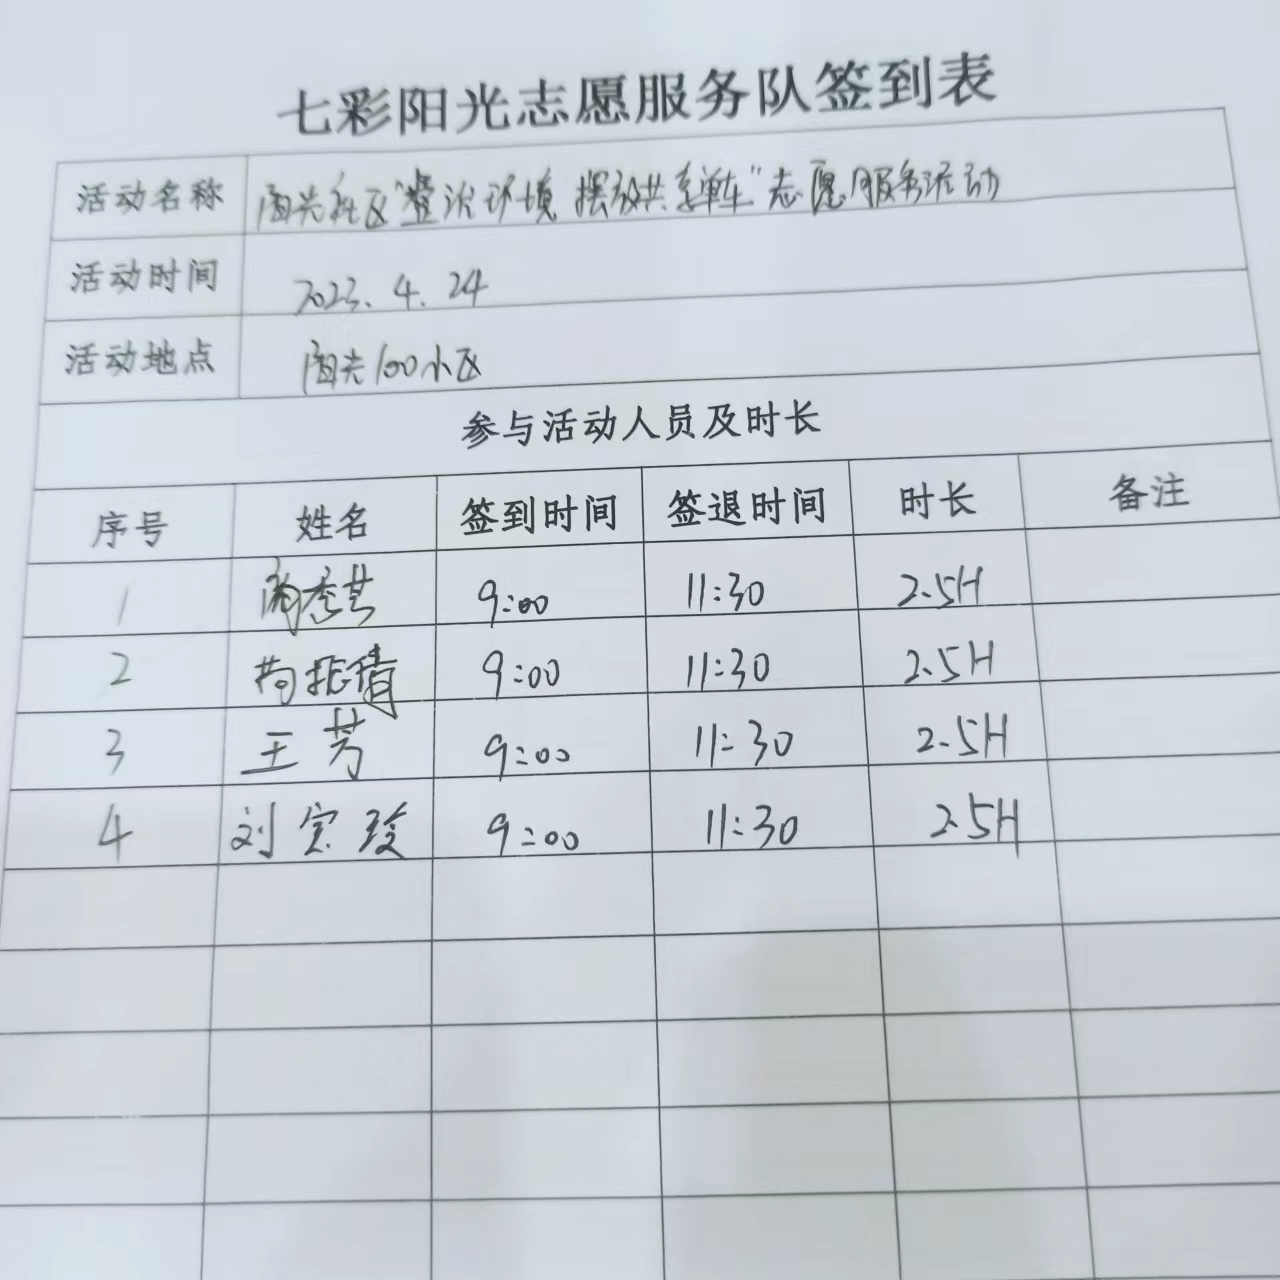 七彩阳光志愿服务队签到表
活动名称 阳光社区"整治环境 摆放共享单车"志愿服务活动
活动时间 2023.4.24
活动地点 阳光100小区
参与活动人员及时长
序号 姓名 签到时间 签退时间 时长 备注
1 9:00 11:30 2.5H
2 9:00 11:30 2.5H
3 王芳 9:00 11:30 2.5H
4 刘宝玲 9:00 11:30 2.5H